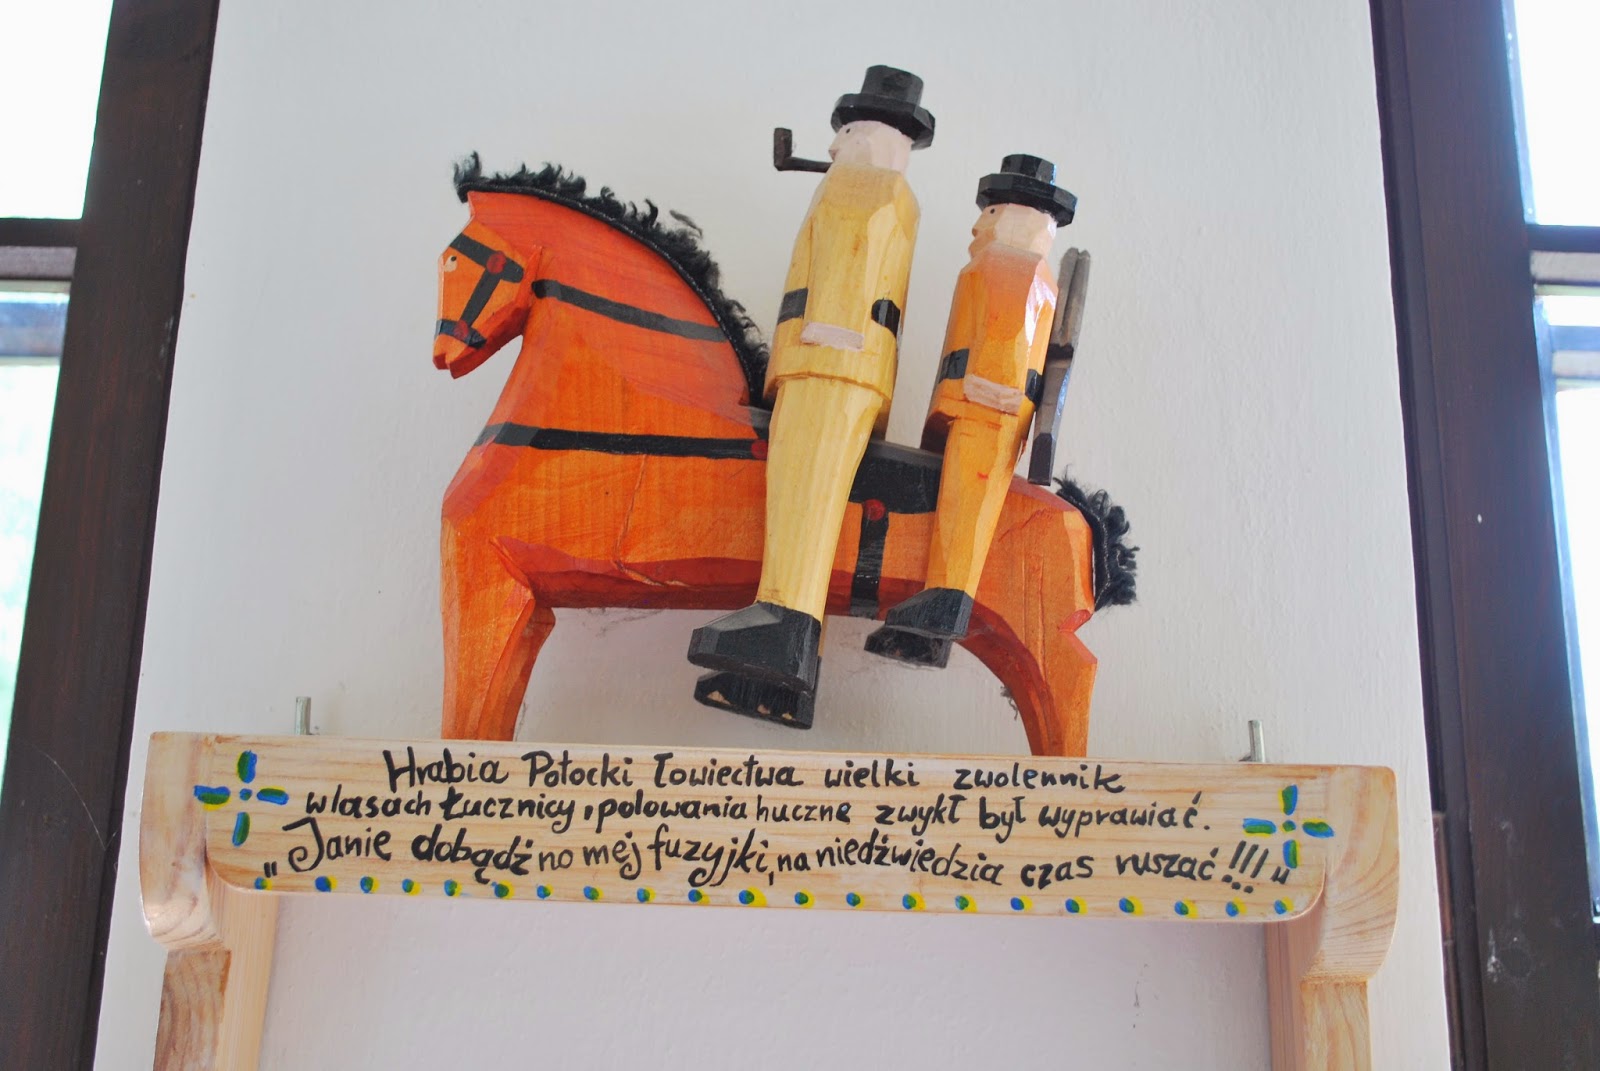 Hrabia Potocki łowiectwa wielki zwolennik
w lasach Łucznicy, polowania huczne zwykł był wyprawiać.
„Janie dobądź no mej fuzyjki, na niedźwiedzia czas ruszać!!!"